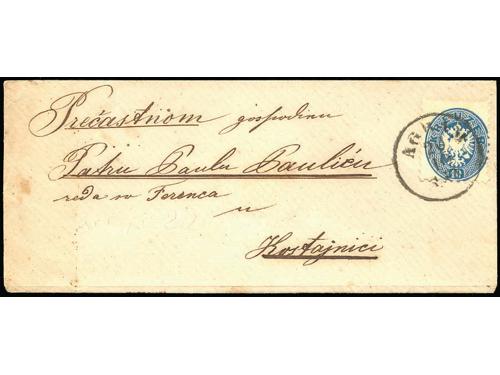 Prečastnom gospodinu
Patru Paulu Pauliću
reda sv Ferenca
u
Kostajnici
AGRAM